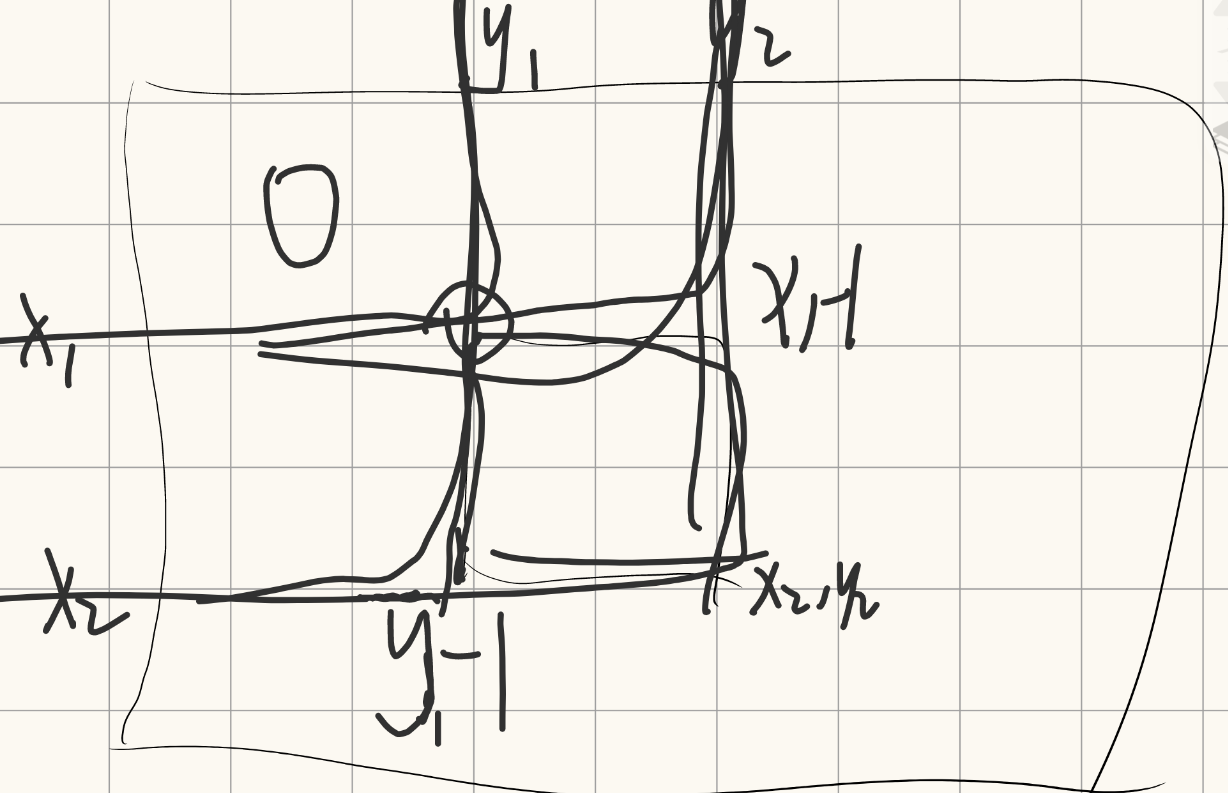 y₁ y₂
0
x₁ x₁-1
x₂ x₂,y₂
y₁-1